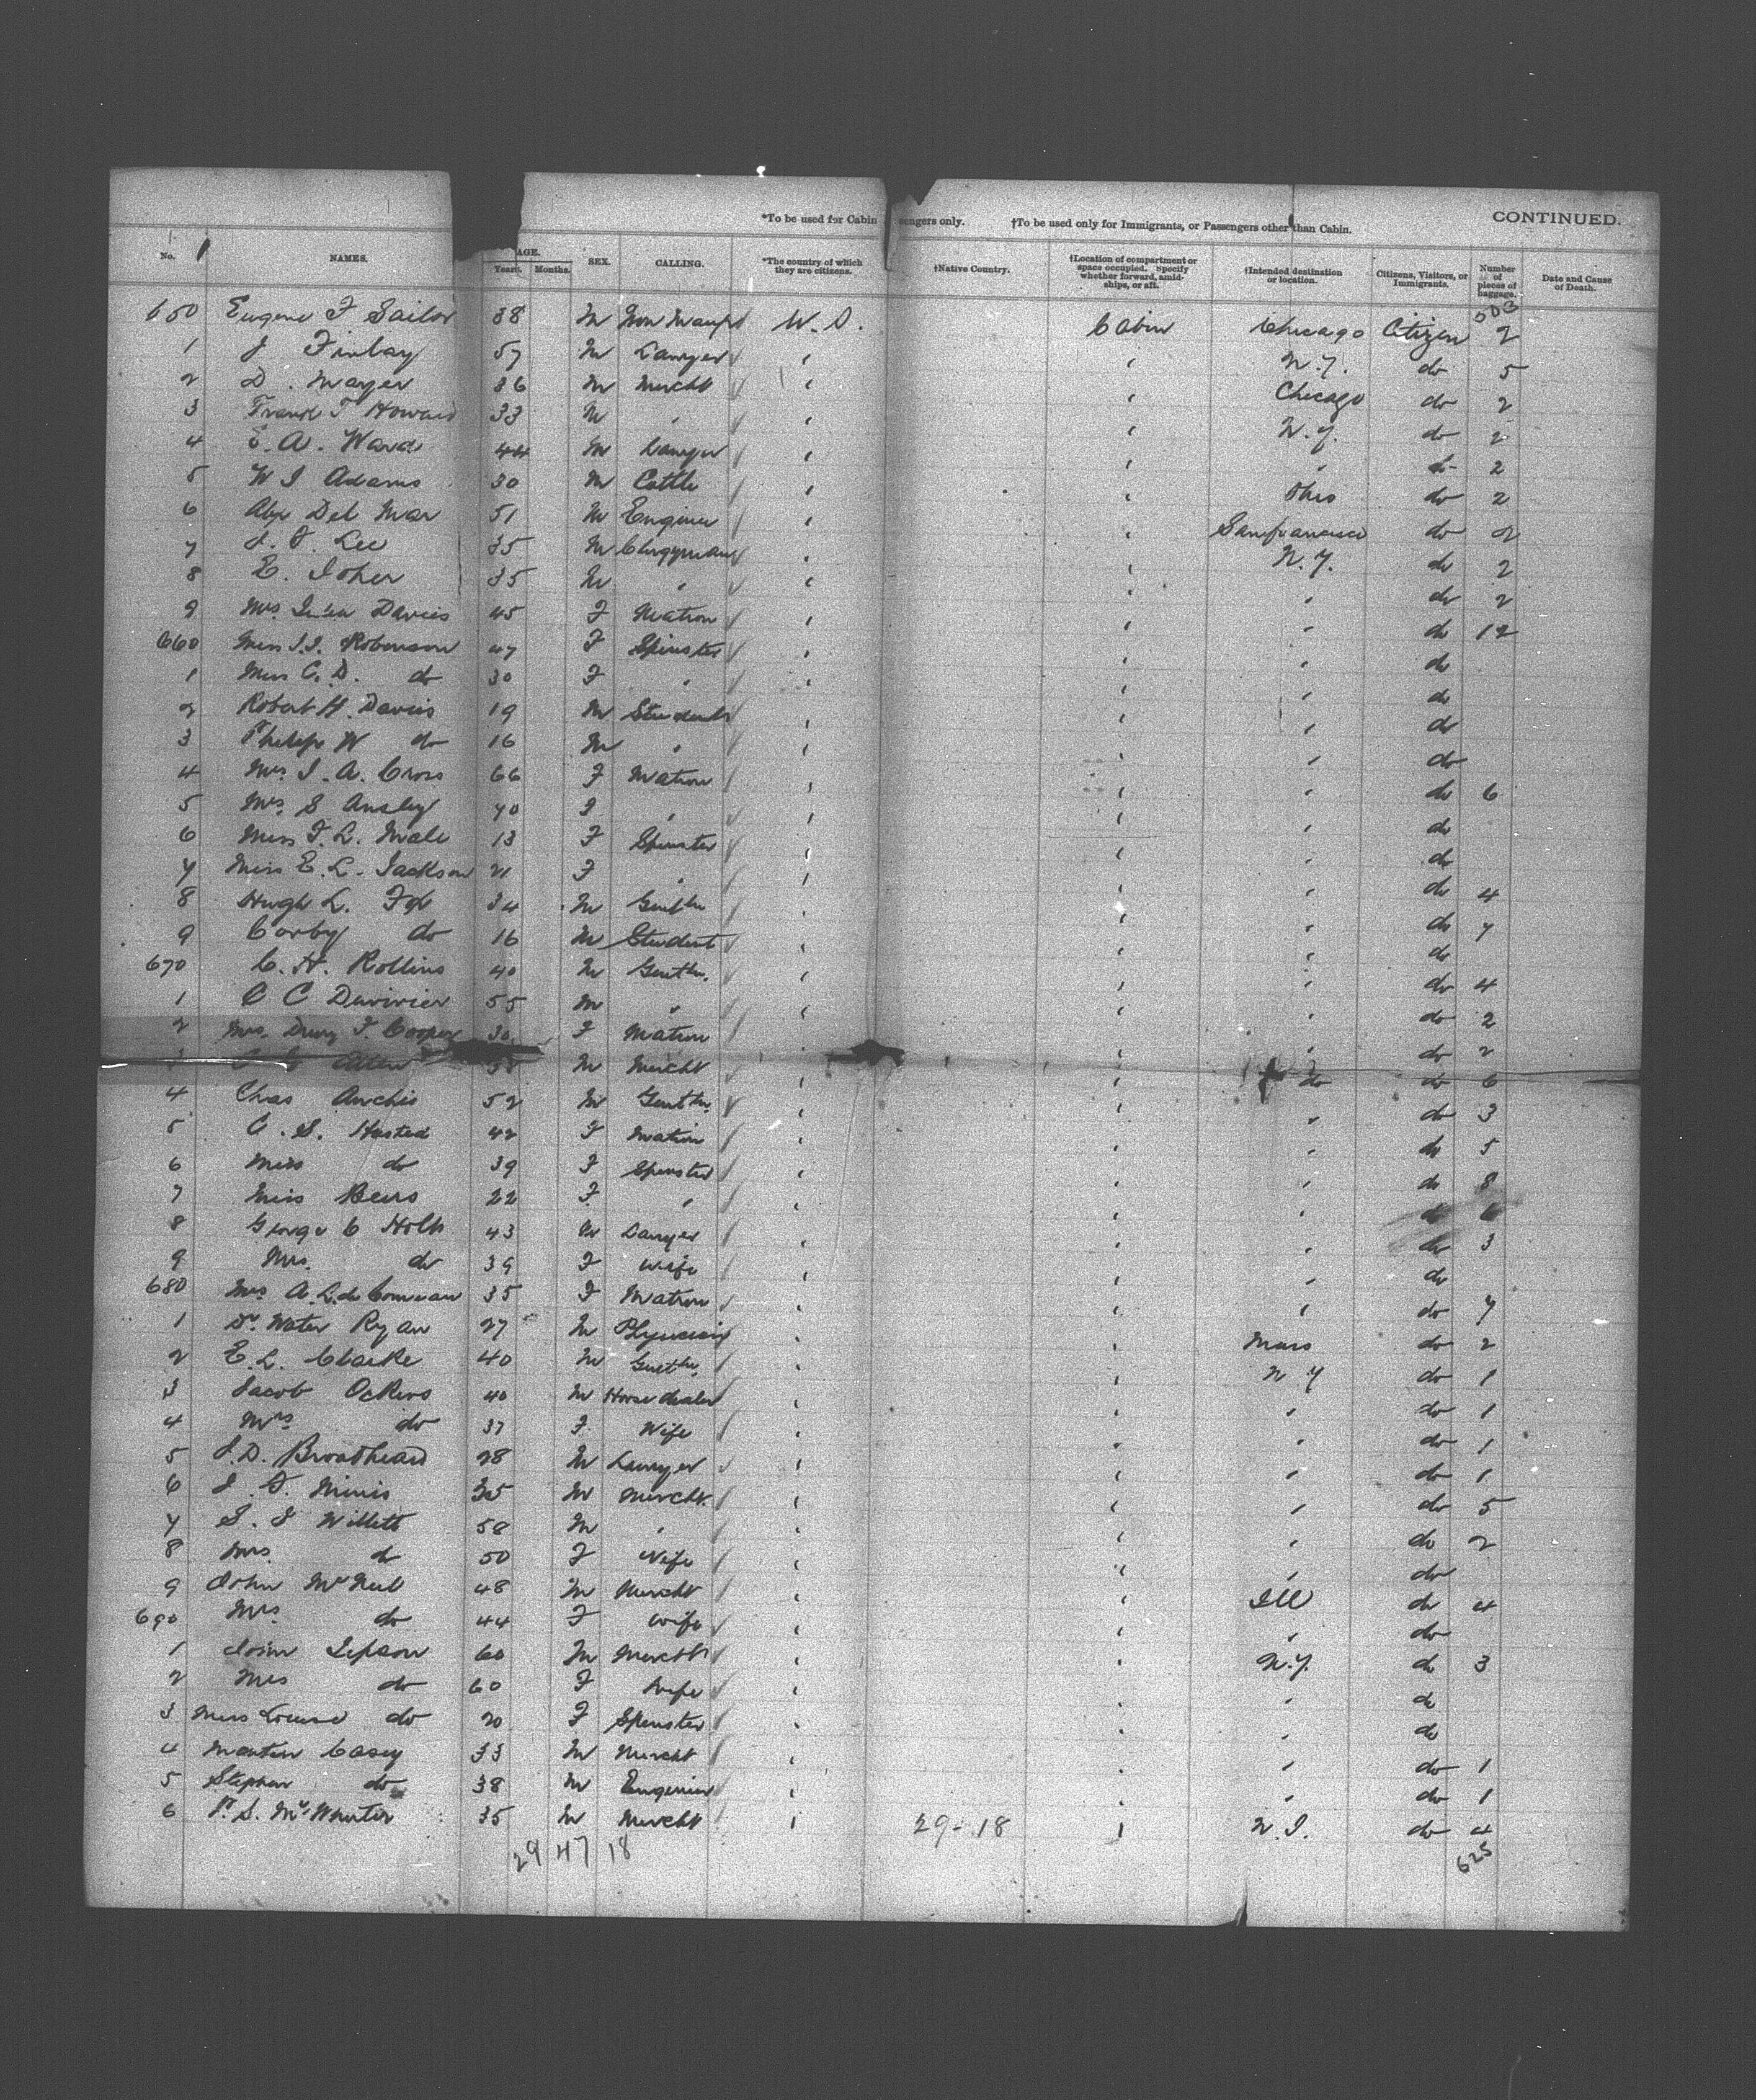 *To be used for Cabin sengers only. †To be used only for Immigrants, or Passengers other than Cabin. CONTINUED.
No. NAMES. AGE. Years. Months. SEX. CALLING. *The country of which they are citizens. †Native Country. †Location of compartment or space occupied. Specify whether forward, amidships, or aft. †Intended destination or location. Citizens, Visitors, or Immigrants. Number of pieces of baggage. Date and Cause of Death.
503
650 Eugene F Sailor 38 M U.S. Cabin Chicago Citizen 2
1 J Finlay 57 M Lawyer " " N.Y. do 5
2 D. Mayer 36 M Mercht " " Chicago do 2
3 Frank T Howard 33 M " " " N.Y. do 2
4 E. A. Ward 44 M Lawyer " " " do 2
5 W I Adams 30 M Cattle " " Ohio do 2
6 Alex Del Mar 51 M Engineer " " Sanfrancisco do 2
7 J. F. Lee 35 M Clergyman " " N.Y. do 2
8 E. 35 M " " " " do 2
9 Mrs Davies 45 F Matron " " " do 12
660 Miss J.J. Robinson 47 F Spinster " " " do
1 Miss C. D. do 30 F " " " " do
2 Robert H. Davies 19 M Students " " " do
3 Philip W do 16 M " " " " do
4 Mrs J. A. Cross 66 F Matron " " " do 6
5 Mrs S Ansley 40 F " " " " do
6 Miss F. L. Male 13 F Spinster " " " do
7 Miss E. L. Jackson 21 F " " " " do 4
8 Hugh L. 34 M Gentln " " " do 7
9 Corby do 16 M Student " " " do
670 C. H. Rollins 40 M Gentln. " " " do 4
1 C C Duvivier 55 M " " " " do 2
2 Mrs. Drury F. Cooper 30 F Matron " " " do 2
3 Allen 38 M Mercht " " do do 6
4 Chas 52 M Gentln. " " " do 3
5 C. S. Husted 42 F Matron " " " do 5
6 Miss do 39 F Spinster " " " do 8
7 Miss Beers 22 F " " " " do 6
8 George C Holt 43 M Lawyer " " " do 3
9 Mrs. do 39 F Wife " " " do
680 Mrs A. L. de 35 F Matron " " " do 7
1 Dr. Ryan 27 M Physician " " Mass do 2
2 E. L. Clarke 40 M Gentln. " " N Y do 1
3 Jacob Ockers 40 M Horse dealer " " " do 1
4 Mrs do 37 F Wife " " " do 1
5 J. D. Broadhead 28 M Lawyer " " " do 1
6 J. F. Minis 35 M Mercht. " " " do 5
7 S. J Willets 58 M " " " " do 2
8 Mrs. do 50 F Wife " " " do
9 John McNeil 48 M Mercht " " Ill do 4
690 Mrs do 44 F Wife " " " do
1 John Jepson 60 M Mercht " " N.Y. do 3
2 Mrs do 60 F Wife " " " do
3 Miss Louise do 20 F Spinster " " " do
4 Martin Casey 33 M Mercht " " " do 1
5 Stephen do 38 M Engineer " " " do 1
6 P. S. McWhurter 35 M Mercht " 29-18 " N.J. do 4
29 47 18 625